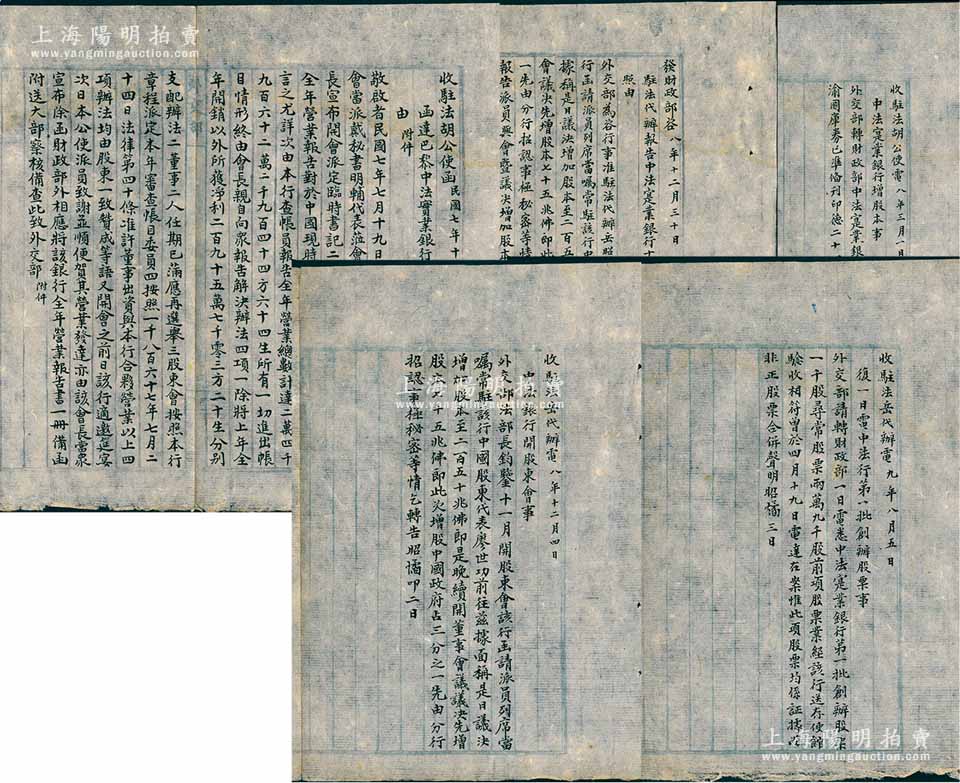 上海陽明拍賣
www.yangmingauction.com
收駐法胡公使電 八年三月一日
中法寔業銀行增股本事
外交部轉財政部中法寔業銀
渝國庫券已準備刊印德二十
發財政部咨 八年十二月三十日
駐法代辦報告中法寔業銀行
照由
外交部為咨行事准駐法代辦岳照
行函請派員列席當嘱常駐該行中
據稱是日議決增加股本至二百五
會議決先增股本七十五兆佛即此
一先由分行招認事極秘密等情
報告派員與會暨議決增加股本
收駐法胡公使函 民國七年十
函達巴黎中法實業銀行
由 附件
敬啟者民國七年七月十九日
會當派戴秘書明輔代表蒞會
長宣布開會派定臨時書記二
全年營業報告對於中國現時
言之尤詳次由本行查帳員報告全年營業總數計達二萬四千
九百六十二萬二千九百四十四方六十四生所有一切進出帳
目情形終由會長親自向眾報告解決辦法四項一除將上年全
年開銷以外所獲淨利二百九十五萬七千零三方二十生分別
支配辦法二董事二人任期已滿應再選舉三股東會按照本行
章程派定本年審查帳目委員四按照一千八百六十七年七月二
十四日法律第四十條准許董事出資與本行合夥營業以上四
項辦法均由股東一致贊成等語又開會之前日該行適邀延宴
次日本公使派員致謝並順便賀其營業發達亦由該會長當眾
宣布除函財政部外相應將該銀行全年營業報告書一冊備函
附送大部察核備查此致外交部 附件
收駐法岳代辦電 八年十二月四日
中法銀行開股東會事
外交部法部長鈞鑒十一月開股東會該行函請派員列席當
嘱常駐該行中國股東代表廖世功前往茲據面稱是日議決
增加股本至二百五十兆佛即是晚續開董事會議議決先增
股本七十五兆佛即此次增股中國政府占三分之一先由分行
招認事極秘密等情乞轉告昭燏叩二日
收駐法岳代辦電 九年八月五日
復一日電中法行第一批創辦股票事
外交部請轉財政部一日電悉中法寔業銀行第一批創辦股票
一千股尋常股票兩萬九千股前項股票業經該行送存使館
驗收相符曾於四月十九日電達在案惟此項股票均係証據
非正股票合併聲明昭燏三日
上海陽明拍賣
www.yangmingauction.com